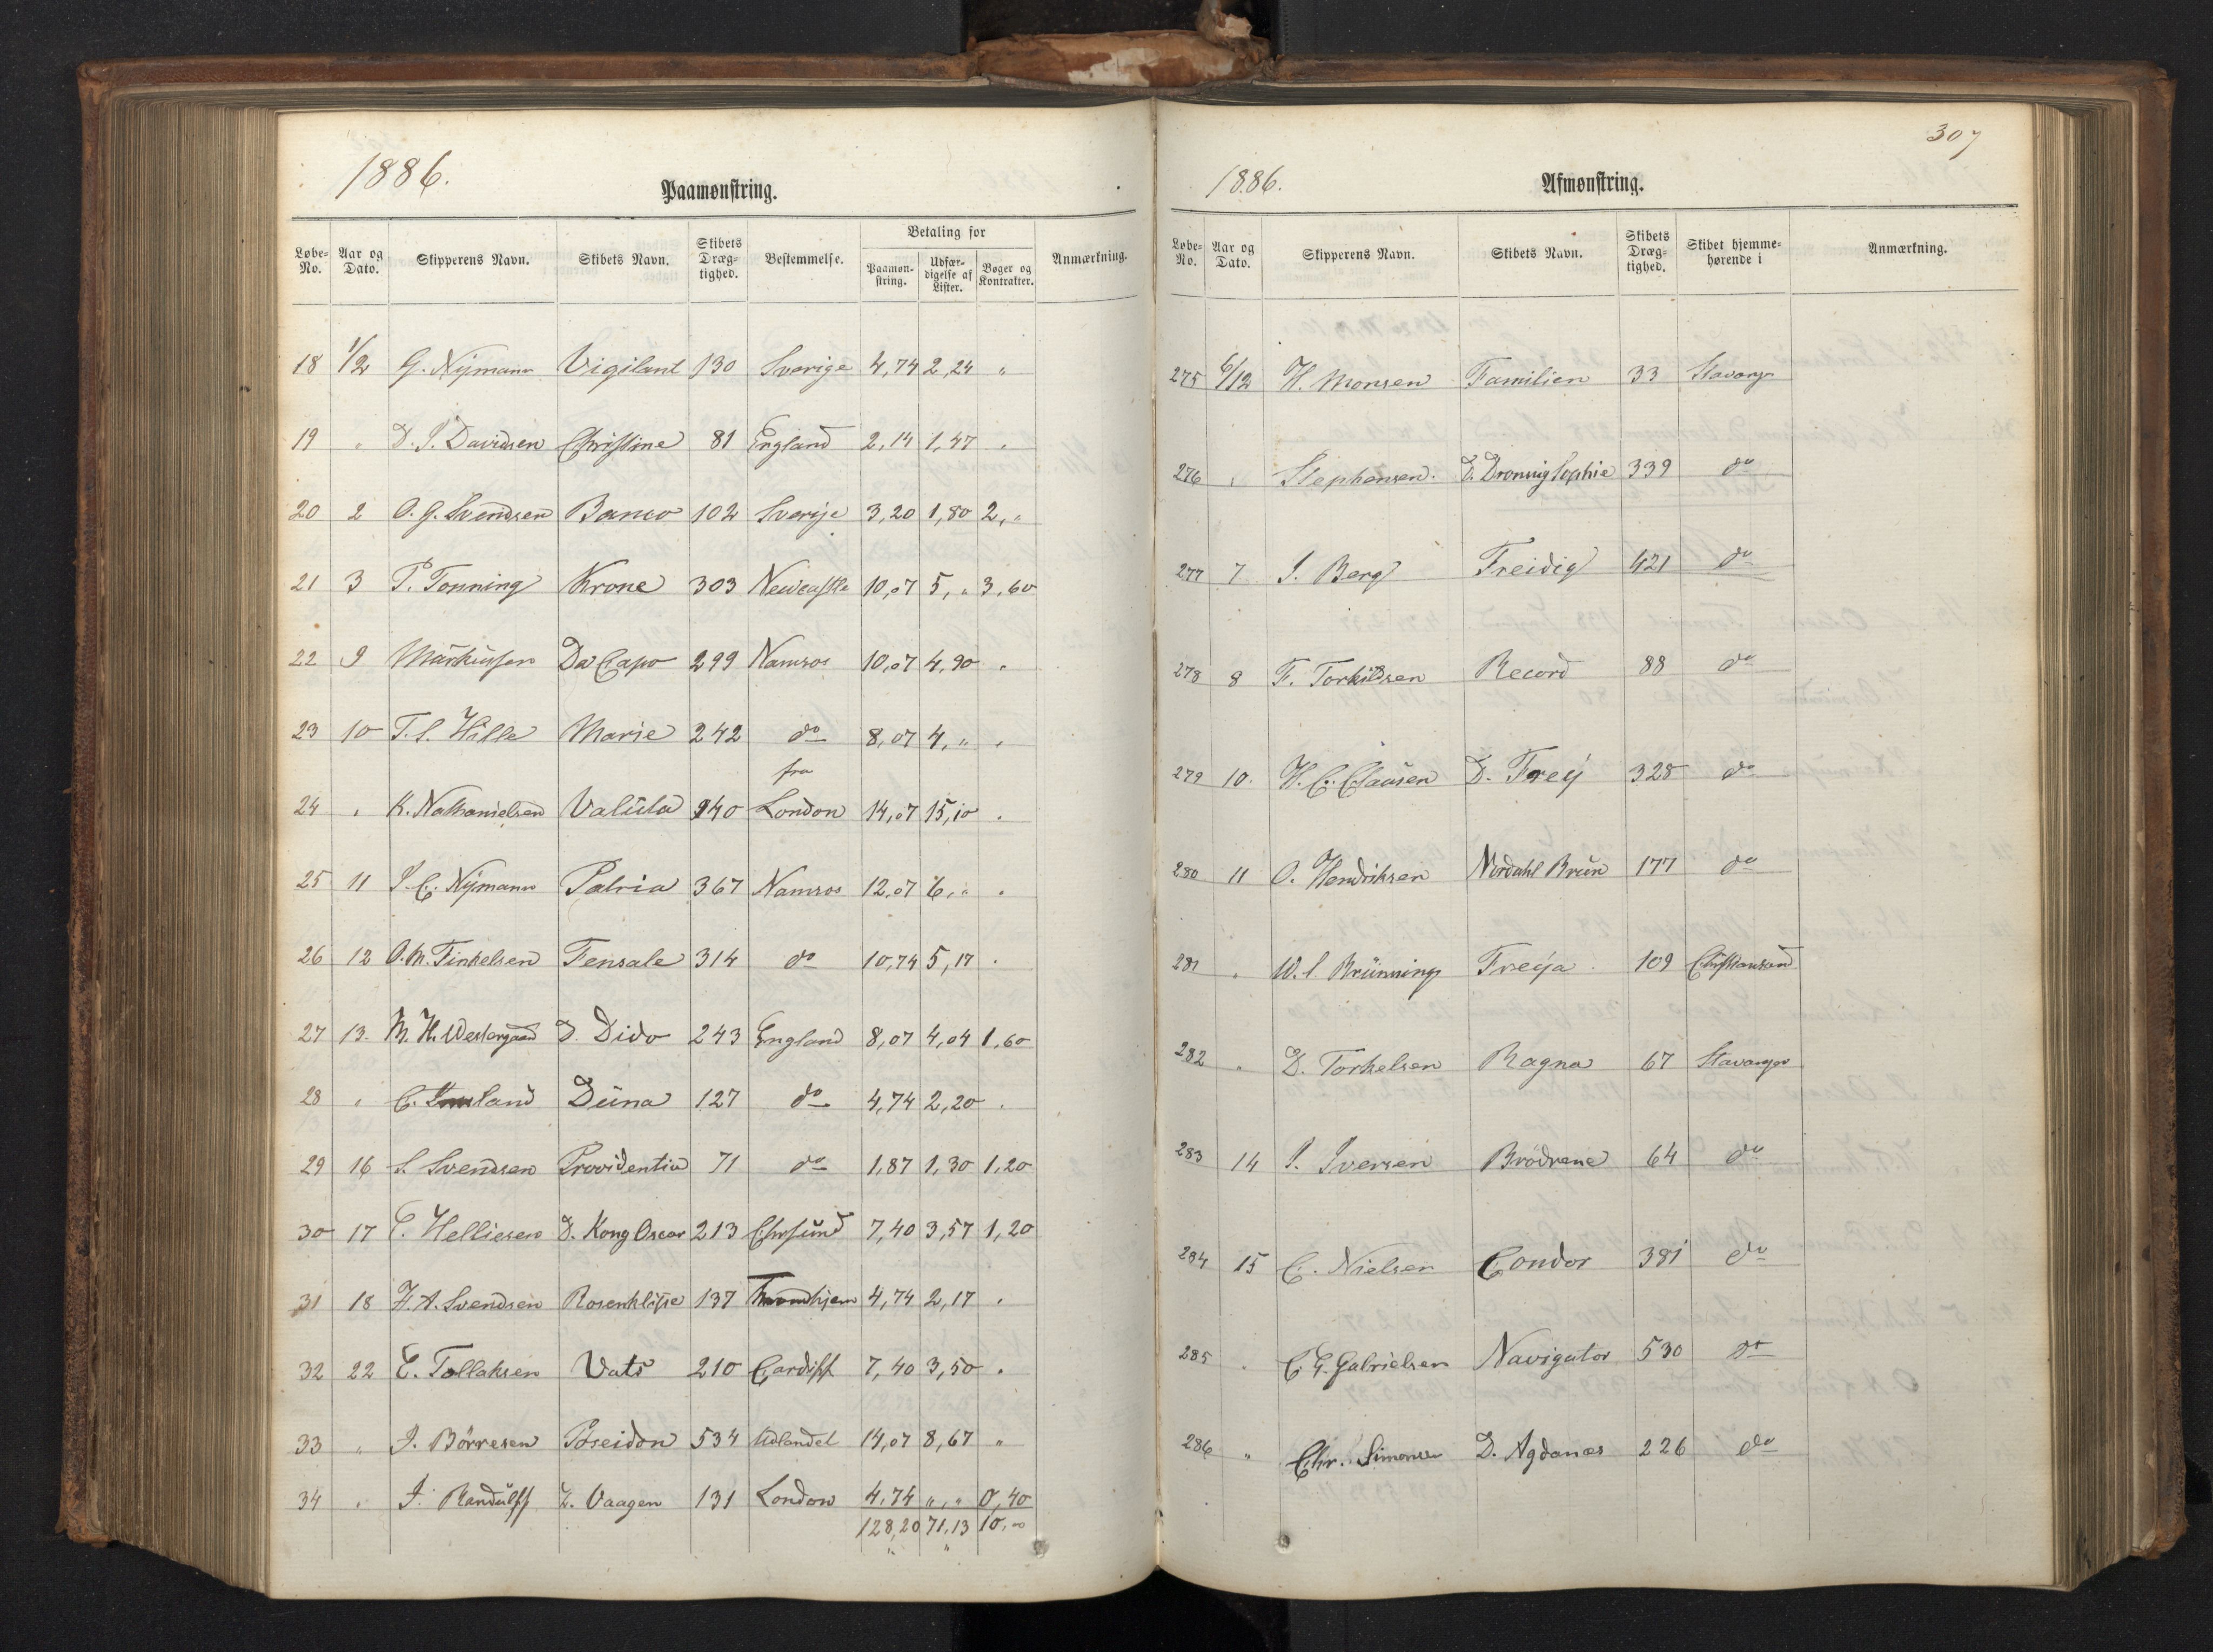 1886.
Paamønstring.
Løbe-No. Aar og Dato. Skipperens Navn. Skibets Navn. Skibets Dræg-tighed. Bestemmelse. Betaling for Paamøn-string. Udfær-digelse af Lister. Bøger og Kontrakter. Anmærkning.
18 1/2 G. Nÿmann Vigilant 130 Sverige 4,74 2,24 "
19 " D. J. Davidsen Christine 81 England 2,14 1,47 "
20 2 O. G. Svendsen Banco 102 Sverige 3,20 1,80 2,"
21 3 P. Tonning Krone 303 Newcastle 10,07 5," 3,60
22 9 Markussen Da Capo 299 Namsos 10,07 4,90 "
23 10 T. S. Hille Marie 242 do 8,07 4," "
fra
24 " K. Nathanielsen Valuta 940 London 14,07 15,10 "
25 11 J. C. Nÿmann Patria 367 Namsos 12,07 6," "
26 12 O. M. Tinkelsen Tensale 314 do 10,74 5,17 "
27 13. M. H. Westergaard D. Dido 243 England 8,07 4,04 1,60
28 " C. land Duna 127 do 4,74 2,20 "
29 16 S. Svendsen Providentia 71 do 1,87 1,30 1,20
30 17 T. Helliesen D. Kong Oscar 213 Chrsund 7,40 3,57 1,20
31 18 H. A. Svendsen Rosenkilde 137 Trondhjem 4,74 2,17 "
32 22 E. Tollaksen Vats 210 Cardiff 7,40 3,50 "
33 " J. Börresen Poseidon 534 Udlandet 14,07 8,67 "
34 " J. Randulff L. Vaagen 131 London 4,74 "," 0,40
128,20 71,13 10,"
307
1886.
Afmønstring.
Løbe-No. Aar og Dato. Skipperens Navn. Skibets Navn. Skibets Dræg-tighed. Skibet hjemme-hørende i Anmærkning.
275 6/12 H. Monsen Familien 33 Stavanger
276 " Stephansen. D. Dronnig Sophie 339 do
277 7 J. Berg Freidig 421 do
278 8 F. Torkildsen Record 88 do
279 10. H. C. Clausen D. Freÿ 328 do
280 11 O. Hendriksen Nordahl Brun 177 do
281 " W. S. Brünnings Freÿa 109 Christiansand
282 " D. Torkelsen Ragna 67 Stavanger
283 14 J. Iversen Brödrene 64 do
284 15 C. Nielsen Condor 381 do
285 " C. G. Gabrielsen Navigator 530 do
286 " Chr. Simonsen D. Agdanes 226 do